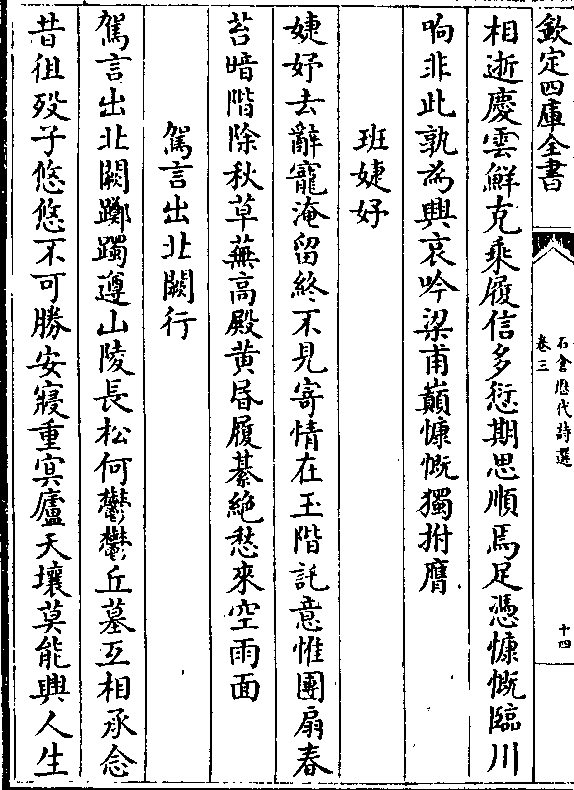 欽定四庫全書
石倉歷代詩選
卷三
十四
相逝慶雲鮮克乘履信多愆期思順焉足憑慷慨臨川
响非此孰爲興哀吟梁甫巔慷慨獨拊膺
班婕妤
婕妤去辭寵淹留終不見寄情在玉階託意惟團扇春
苔暗階除秋草蕪高殿黄昏履綦絶愁來空雨面
駕言出北闕行
駕言出北闕躑躅遵山陵長松何鬱鬱丘墓互相承念
昔徂殁子悠悠不可勝安寢重冥廬天壤莫能興人生